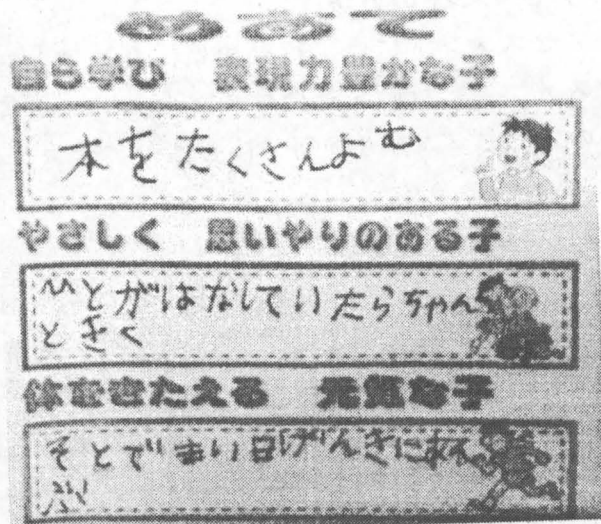 めあて
自ら学び 表現力豊かな子
本をたくさんよむ
やさしく 思いやりのある子
ひとがはなしていたらちゃん
ときく
体をきたえる 元気な子
そとでまい日げんきにあそ
ぶ